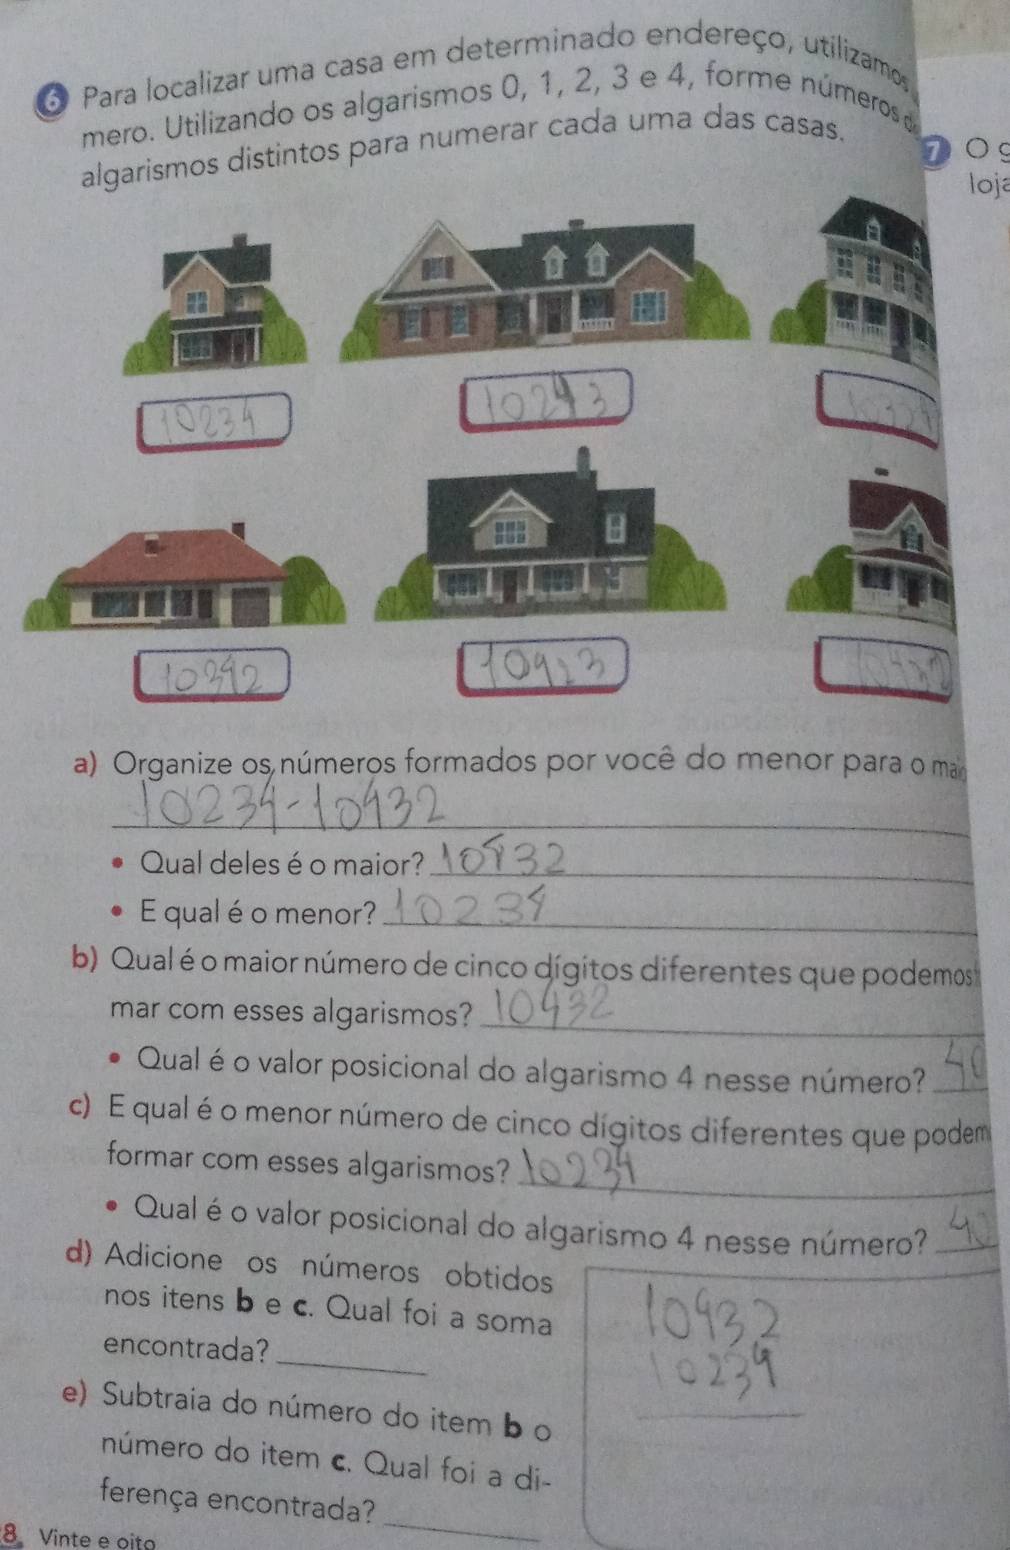 6 Para localizar uma casa em determinado endereço, utilizamos
mero. Utilizando os algarismos 0, 1, 2, 3 e 4, forme números d
algarismos distintos para numerar cada uma das casas.
7 O g
loja
10234
10243
10342
10423
10432
a) Organize os números formados por você do menor para o mai
10234-10432
• Qual deles é o maior? 10432
• E qual é o menor? 10234
b) Qual é o maior número de cinco dígitos diferentes que podemos
mar com esses algarismos? 10432
• Qual é o valor posicional do algarismo 4 nesse número? 40
c) E qual é o menor número de cinco dígitos diferentes que podem
formar com esses algarismos? 10234
• Qual é o valor posicional do algarismo 4 nesse número? 40
d) Adicione os números obtidos
nos itens b e c. Qual foi a soma
encontrada?
10432
10234
e) Subtraia do número do item b o
número do item c. Qual foi a di-
ferença encontrada?
8 Vinte e oito